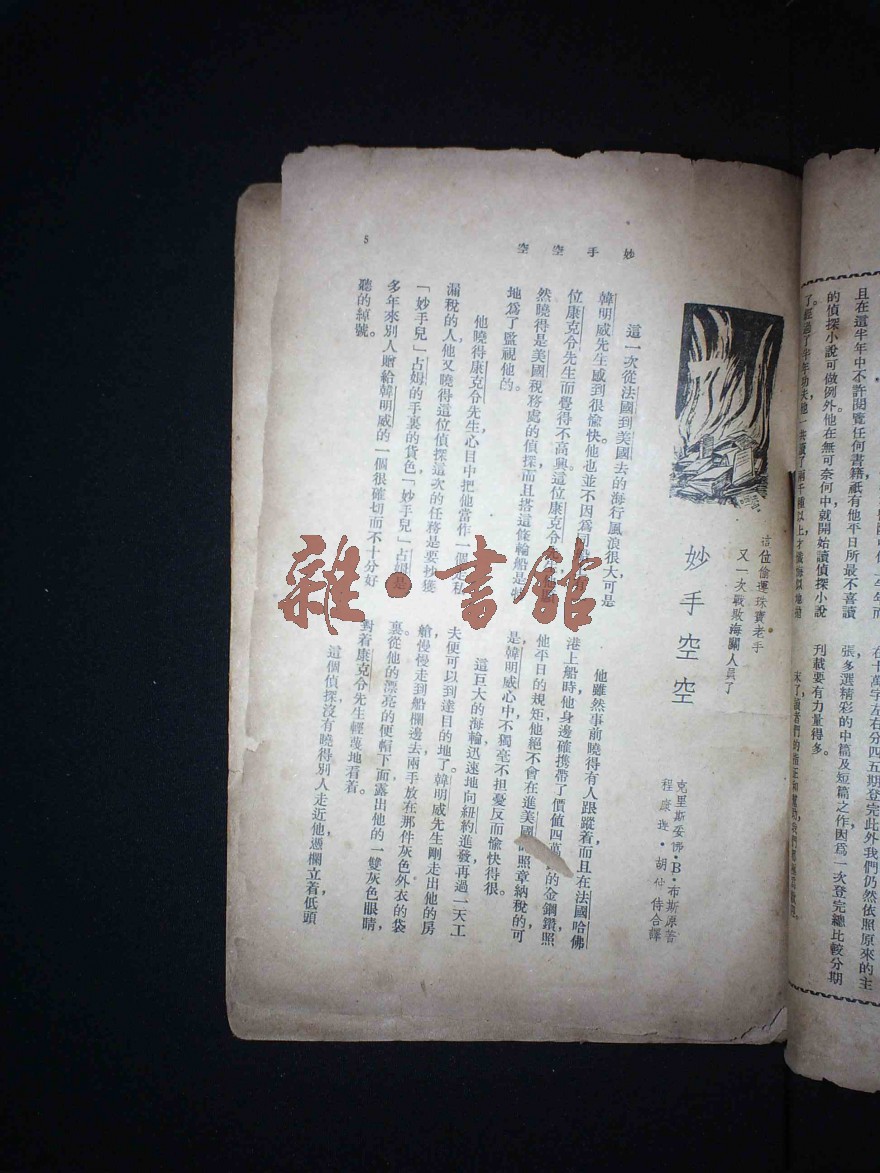 5
妙手空空
這位偷運珠寶老手
又一次戰敗海關人員了
妙手空空
克里斯妥佛·B·布斯原著
合譯
這一次從法國到美國去的海行風浪很大可是
韓明威先生感到很愉快。他也並不因爲
位康克令先生而覺得不高興。這位康克令先生
然曉得是美國稅務處的偵探而且搭這條輪船是
地爲了監視他的。
他曉得康克令先生心目中把他當作一個走私
漏稅的人他又曉得這位偵探這次的任務是要抄獲
「妙手兒」占姆的手裏的貨色「妙手兒」占姆是
多年來別人贈給韓明威的一個很確切而不十分好
聽的綽號。
他雖然事前曉得有人跟蹤着而且在法國哈佛
港上船時他身邊確携帶了價值四萬 的金鋼鑽照
他平日的規矩他絕不會在進美國 照章納稅的可
是韓明威心中不獨毫不担憂反而愉快得很。
這巨大的海輪迅速地向紐約進發再過一天工
夫便可以到達目的地了。韓明威先生剛走出他的房
艙慢慢走到船欄邊去兩手放在那件灰色外衣的袋
裏從他的漂亮的便帽下面露出他的一雙灰色眼睛
對着康克令先生輕蔑地看着。
這個偵探沒有曉得別人走近他憑欄立着低頭
且在這半年中不許閱覽任何書籍祇有他平日所最不喜讀
的偵探小說可做例外。他在無可奈何中就開始讀偵探小說
在十萬字左右分四五期登完此外我們仍然依照原來的主
張多選精彩的中篇及短篇之作因爲一次登完總比較分期
刊載要有力量得多。
雜·書館